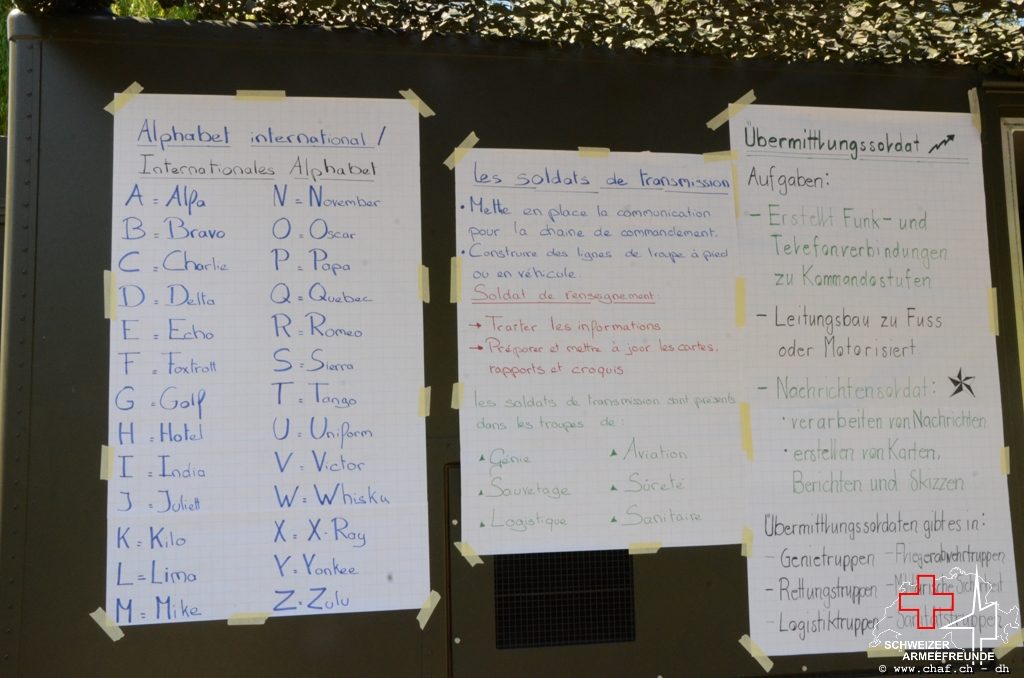 Alphabet international /
Internationales Alphabet
A = Alfa
B = Bravo
C = Charlie
D = Delta
E = Echo
F = Foxtrott
G = Golf
H = Hotel
I = India
J = Juliett
K = Kilo
L = Lima
M = Mike
N = November
O = Oscar
P = Papa
Q = Quebec
R = Romeo
S = Sierra
T = Tango
U = Uniform
V = Victor
W = Whisky
X = X-Ray
Y = Yankee
Z = Zulu
Les soldats de transmission
• Mette en place la communication
pour la chaine de commandement.
• Construire des lignes de troupe à pied
ou en véhicule.
Soldat de renseignement:
→ Traiter les informations
→ Préparer et mettre à jour les cartes,
rapports et croquis
Les soldats de transmission sont présents
dans les troupes de :
▲ Génie
▲ Sauvetage
▲ Logistique
▲ Aviation
▲ Sûreté
▲ Sanitaire
Übermittlungssoldat
Aufgaben:
- Erstellt Funk- und
Telefonverbindungen
zu Kommandostufen
- Leitungsbau zu Fuss
oder Motorisiert
- Nachrichtensoldat:
• verarbeiten von Nachrichten
• erstellen von Karten,
Berichten und Skizzen
Übermittlungssoldaten gibt es in:
- Genietruppen - Fliegerabwehrtruppen
- Rettungstruppen - Militärische Sicherheit
- Logistiktruppen - Sanitätstruppen
SCHWEIZER
ARMEEFREUNDE
© www.chaf.ch - dh